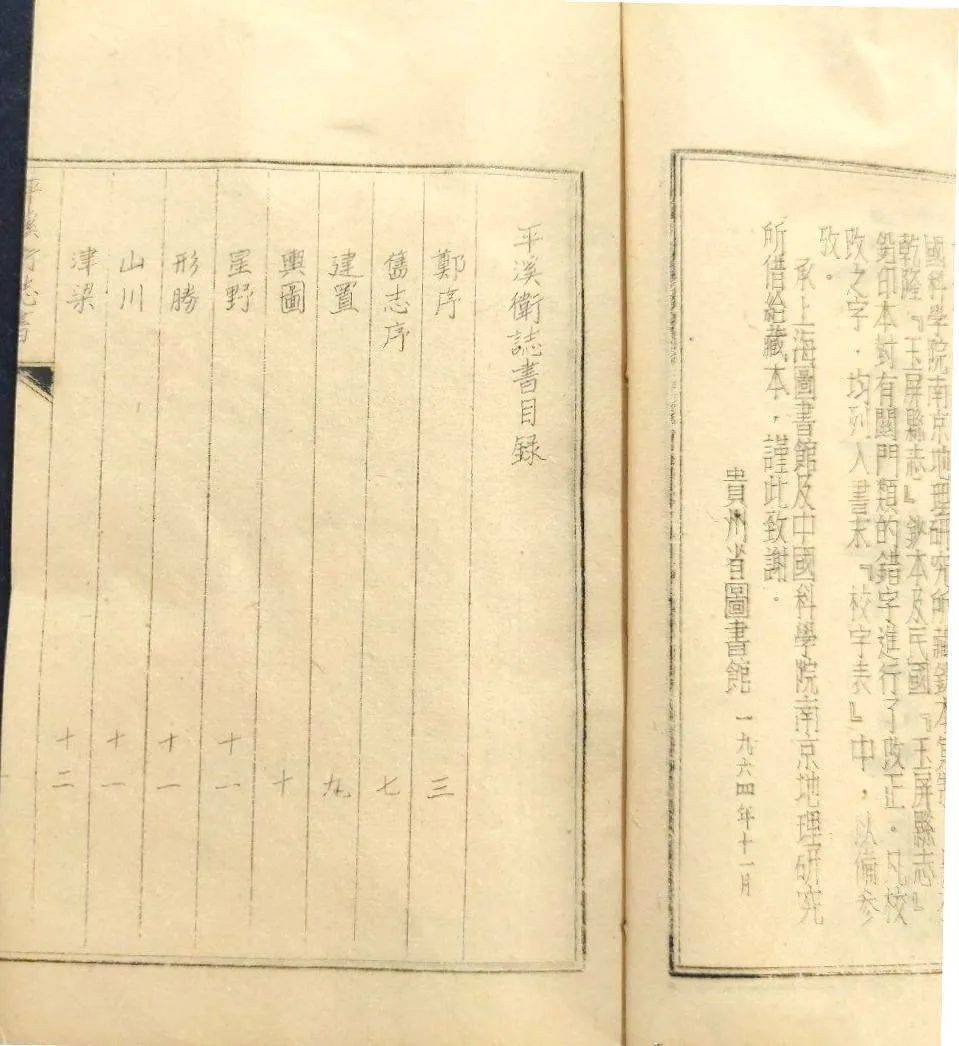 國科學院南京地理研究所藏鈔本
乾隆『玉屏縣志』鈔本及民國『玉屏縣志』
鉛印本封有關門類的錯字進行了改正。凡校
改之字，均列入書末『校字表』中，以備參
攷。
承上海圖書館及中國科學院南京地理研究
所借給藏本，謹此致謝。
貴州省圖書館 一九六四年十一月
平溪衛誌書目録
鄭序 三
舊志序 七
建置 九
輿圖 十
星野 十一
形勝 十一
山川 十一
津梁 十二
平溪衛志書